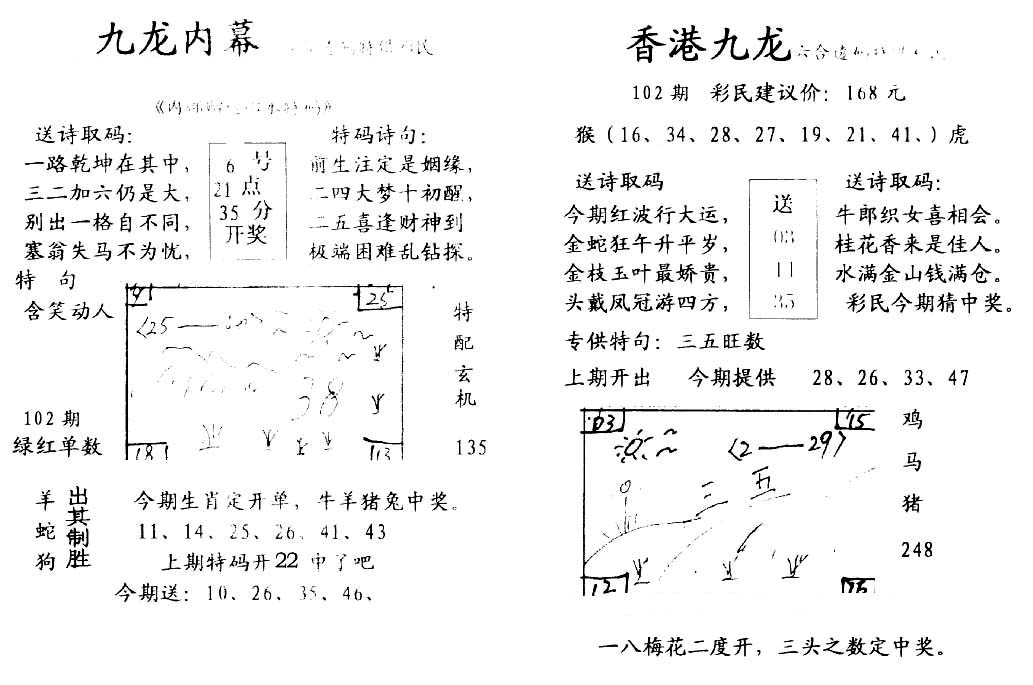 九龙内幕
送诗取码：
一路乾坤在其中，
三二加六仍是大，
别出一格自不同，
塞翁失马不为忧，
6 号
21 点
35 分
开奖
特码诗句：
前生注定是姻缘，
二四大梦十初醒，
二五喜逢财神到
极端困难乱钻探。
特 句
含笑动人
102期
绿红单数
25
〈25——
38
18
113
特
配
玄
机
135
羊
蛇
狗
出其制胜
今期生肖定开单，牛羊猪兔中奖。
11、14、25、26、41、43
上期特码开22 中了吧
今期送：10、26、35、46、
香港九龙
102期 彩民建议价：168元
猴（16、34、28、27、19、21、41、）虎
送诗取码
今期红波行大运，
金蛇狂午升平岁，
金枝玉叶最娇贵，
头戴凤冠游四方，
送
03
11
35
送诗取码：
牛郎织女喜相会。
桂花香来是佳人。
水满金山钱满仓。
彩民今期猜中奖。
专供特句：三五旺数
上期开出 今期提供 28、26、33、47
03
15
〈2——29〉
三五
12
鸡
马
猪
248
一八梅花二度开，三头之数定中奖。